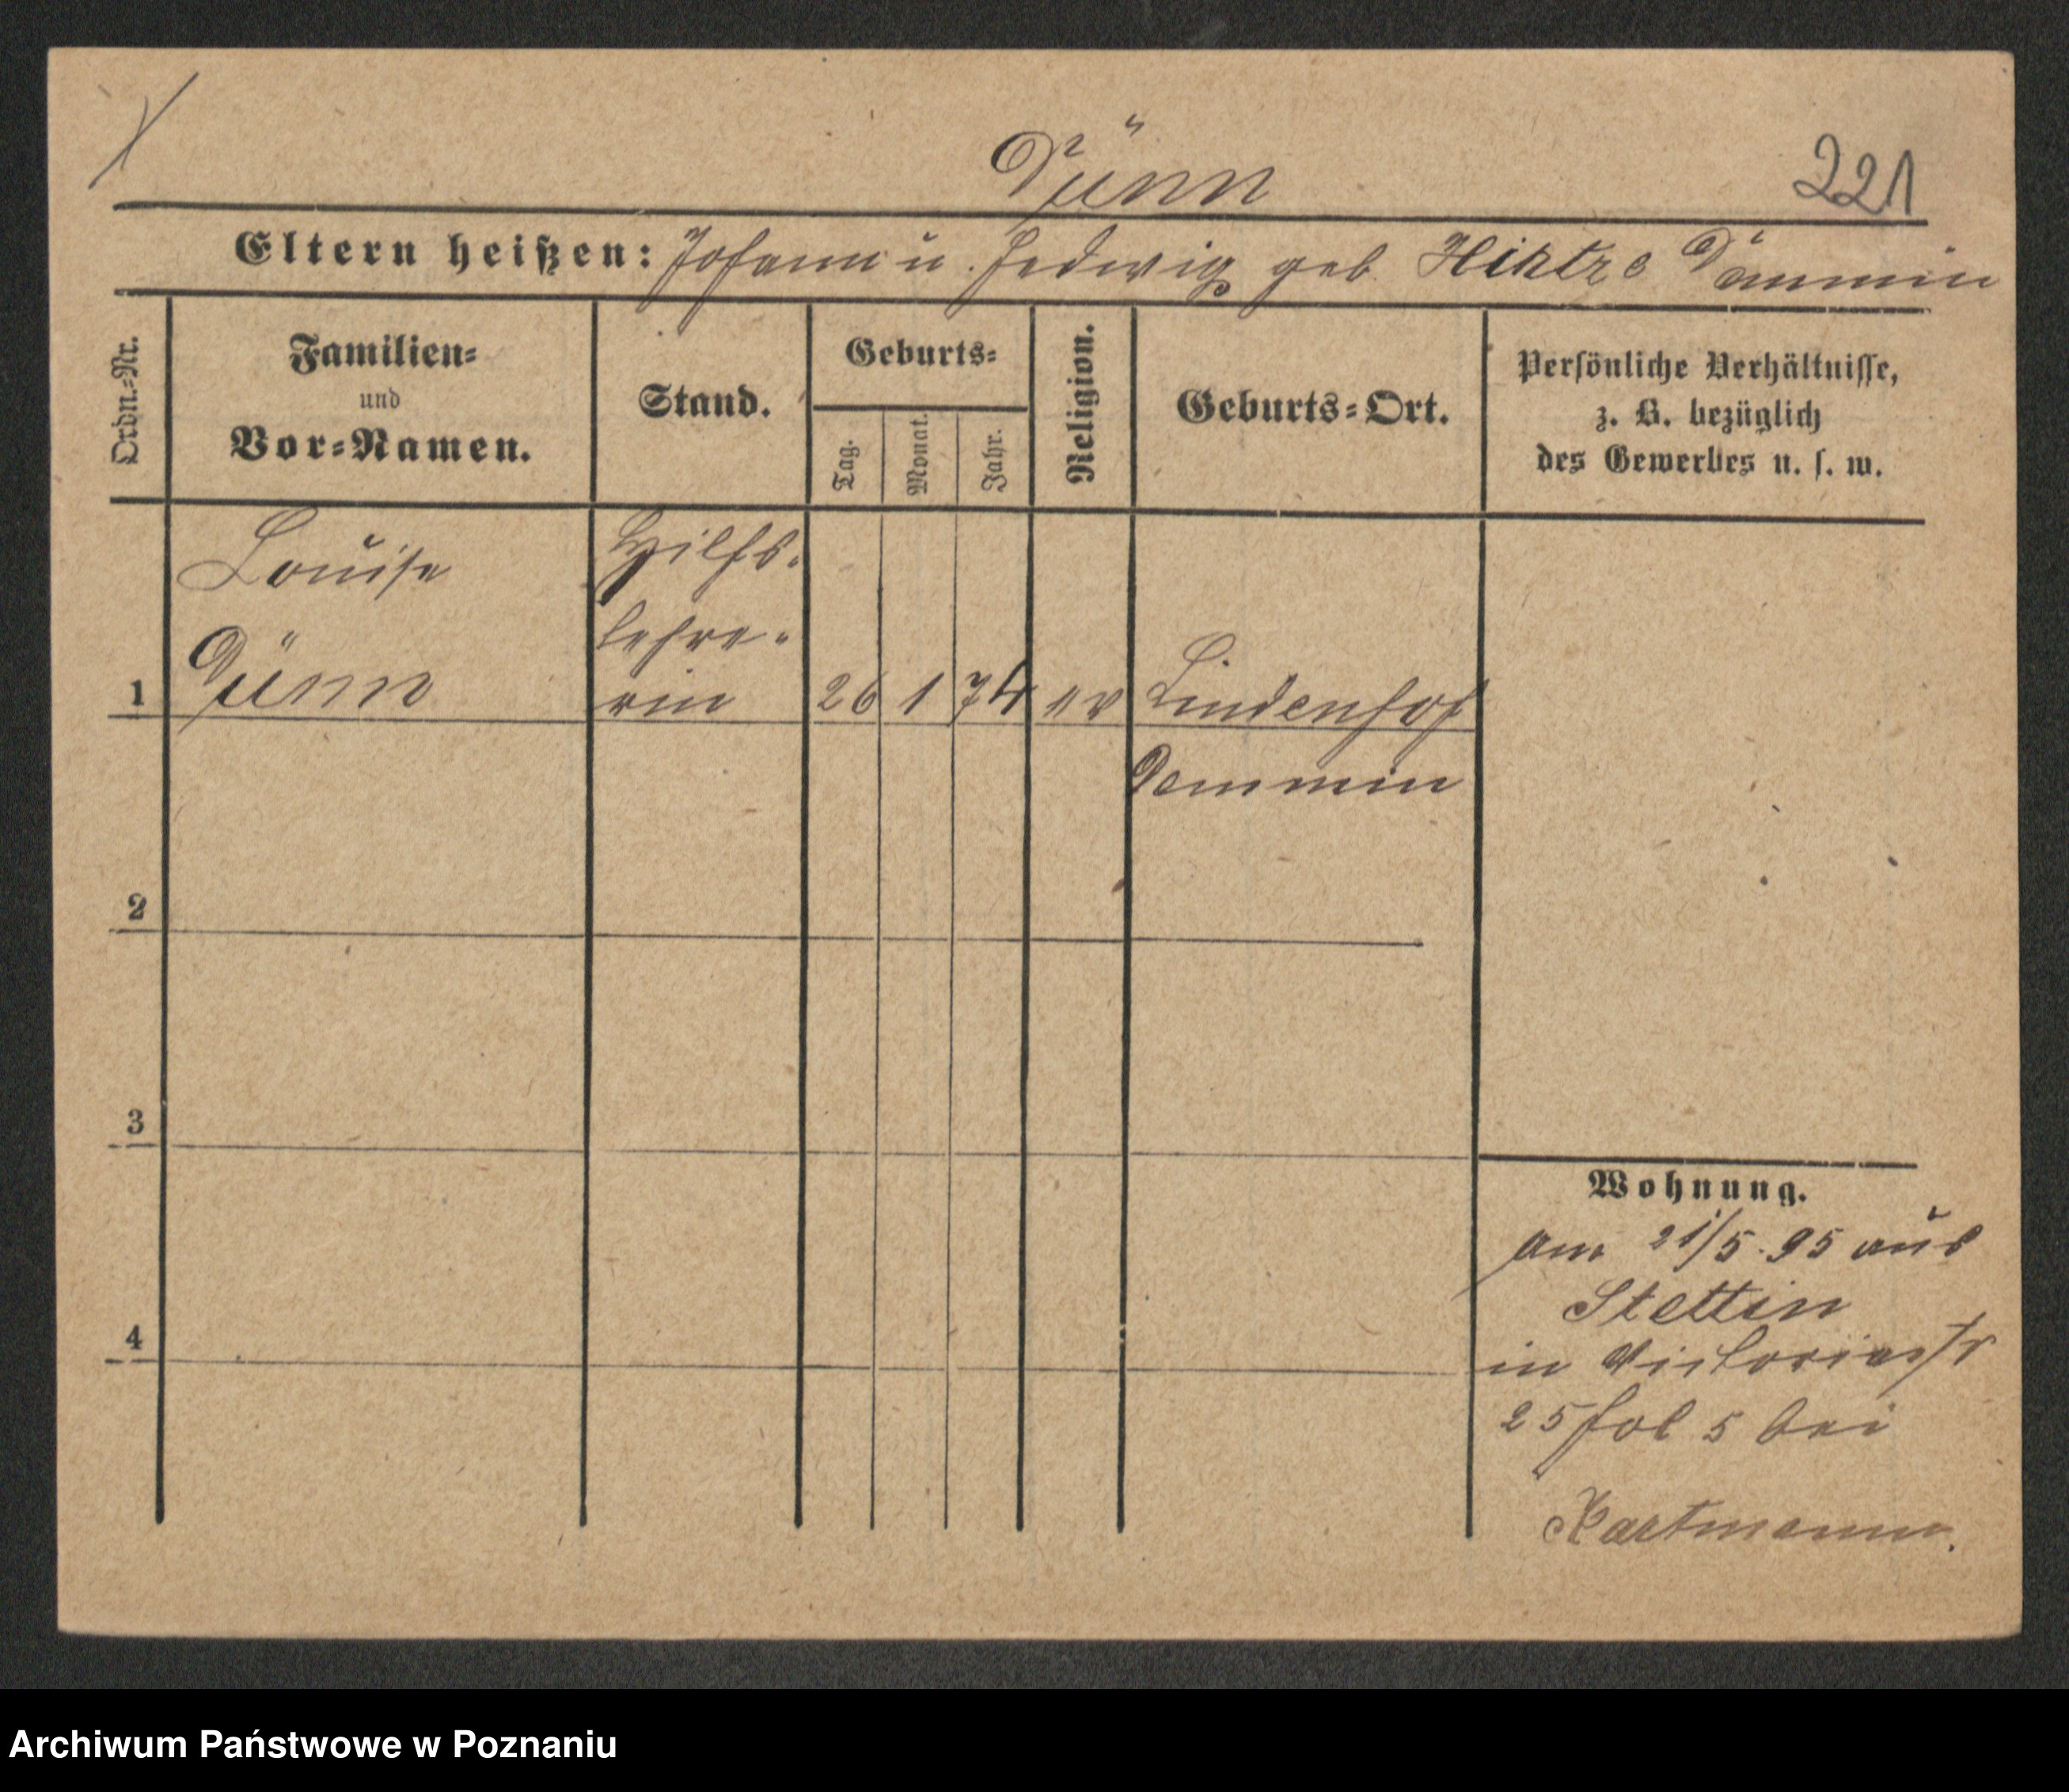 Dünn
221
Eltern heißen: Johann u. Hedwig geb. Hiktze Demmin
Ordn.-Nr.
Familien-
und
Vor-Namen.
Stand.
Geburts-
Tag.
Monat.
Jahr.
Religion.
Geburts-Ort.
Persönliche Verhältnisse,
z. B. bezüglich
des Gewerbes u. s. w.
Louise
Dünn
Hilfs-
lehre-
rin
1
26 1 74 ev
Lindenhof
Demmin
2
3
4
Wohnung.
am 21/5. 95 aus
Stettin
in Victoriastr
25 fol 5 bei
Hartmann.
Archiwum Państwowe w Poznaniu